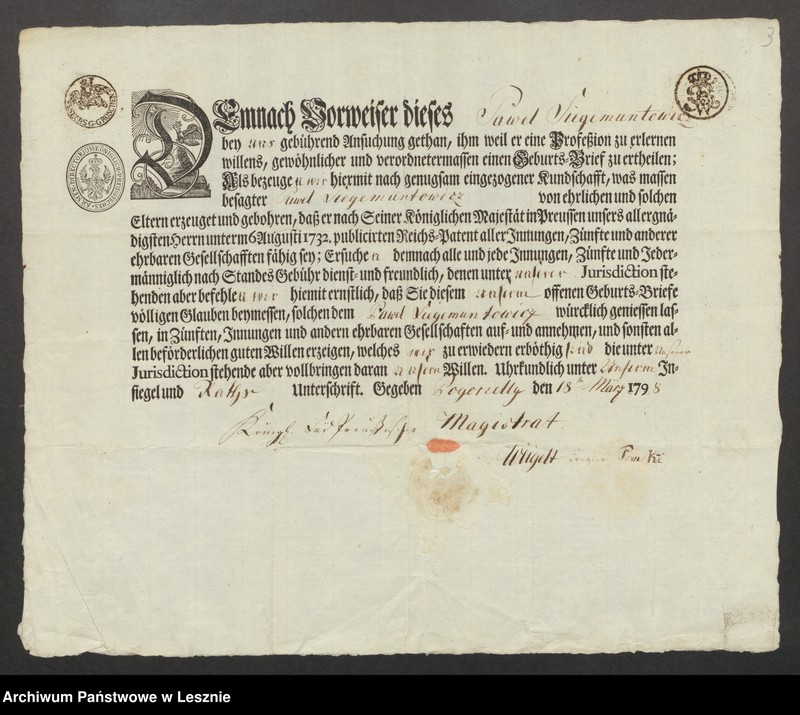 3
DEmnach Vorweiser dieses Pawel Siegemuntowicz
bey uns gebührend Ansuchung gethan, ihm weil er eine Profeßion zu erlernen
willens, gewöhnlicher und verordnetermassen einen Geburts-Brief zu ertheilen;
Als bezeugen wir hiermit nach genugsam eingezogener Kundschafft, was massen
besagter Pawel Siegemuntowicz von ehrlichen und solchen
Eltern erzeuget und gebohren, daß er nach Seiner Königlichen Majestät in Preussen unsers allergnä-
digsten Herrn unterm 6 Augusti 1732. publicirten Reichs-Patent aller Innungen, Zünfte und anderer
ehrbaren Gesellschafften fähig sey; Ersuchen demnach alle und jede Innungen, Zünfte und Jeder-
männiglich nach Standes Gebühr dienst- und freundlich, denen unter unserer Jurisdiction ste-
henden aber befehlen wir hiemit ernstlich, daß Sie diesem unserm offenen Geburts-Briefe
völligen Glauben beymessen, solchen dem Pawel Siegemuntowicz würcklich geniessen las-
sen, in Zünften, Innungen und andern ehrbaren Gesellschaften auf- und annehmen, und sonsten al-
len beförderlichen guten Willen erzeigen, welches wir zu erwiedern erböthig sind die unter unserer
Jurisdiction stehende aber vollbringen daran unsern Willen. Uhrkundlich unter Unserm In-
siegel und Raths Unterschrift. Gegeben Pogorzelly den 18t März 1798
Königl. Süd Preußischer Magistrat.
Archiwum Państwowe w Lesznie